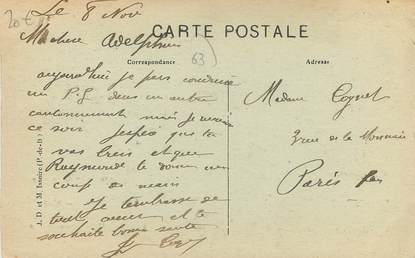 20 €
Le 8 Nov
CARTE POSTALE
Ma chère Adelphine
63
Correspondance
Adresse
aujourd'hui je pars conduire
un P.G. dans un autre
cantonnement mais je reviens
ce soir j'espère que tu
vas bien et que
Raymonde te donne un
coup de main
Je t'embrasse de
tout cœur et te
souhaite bonne santé
Madame Cognet
rue de la Monnaie
Paris
J. D. et M. Issoire (P.-de-D.)